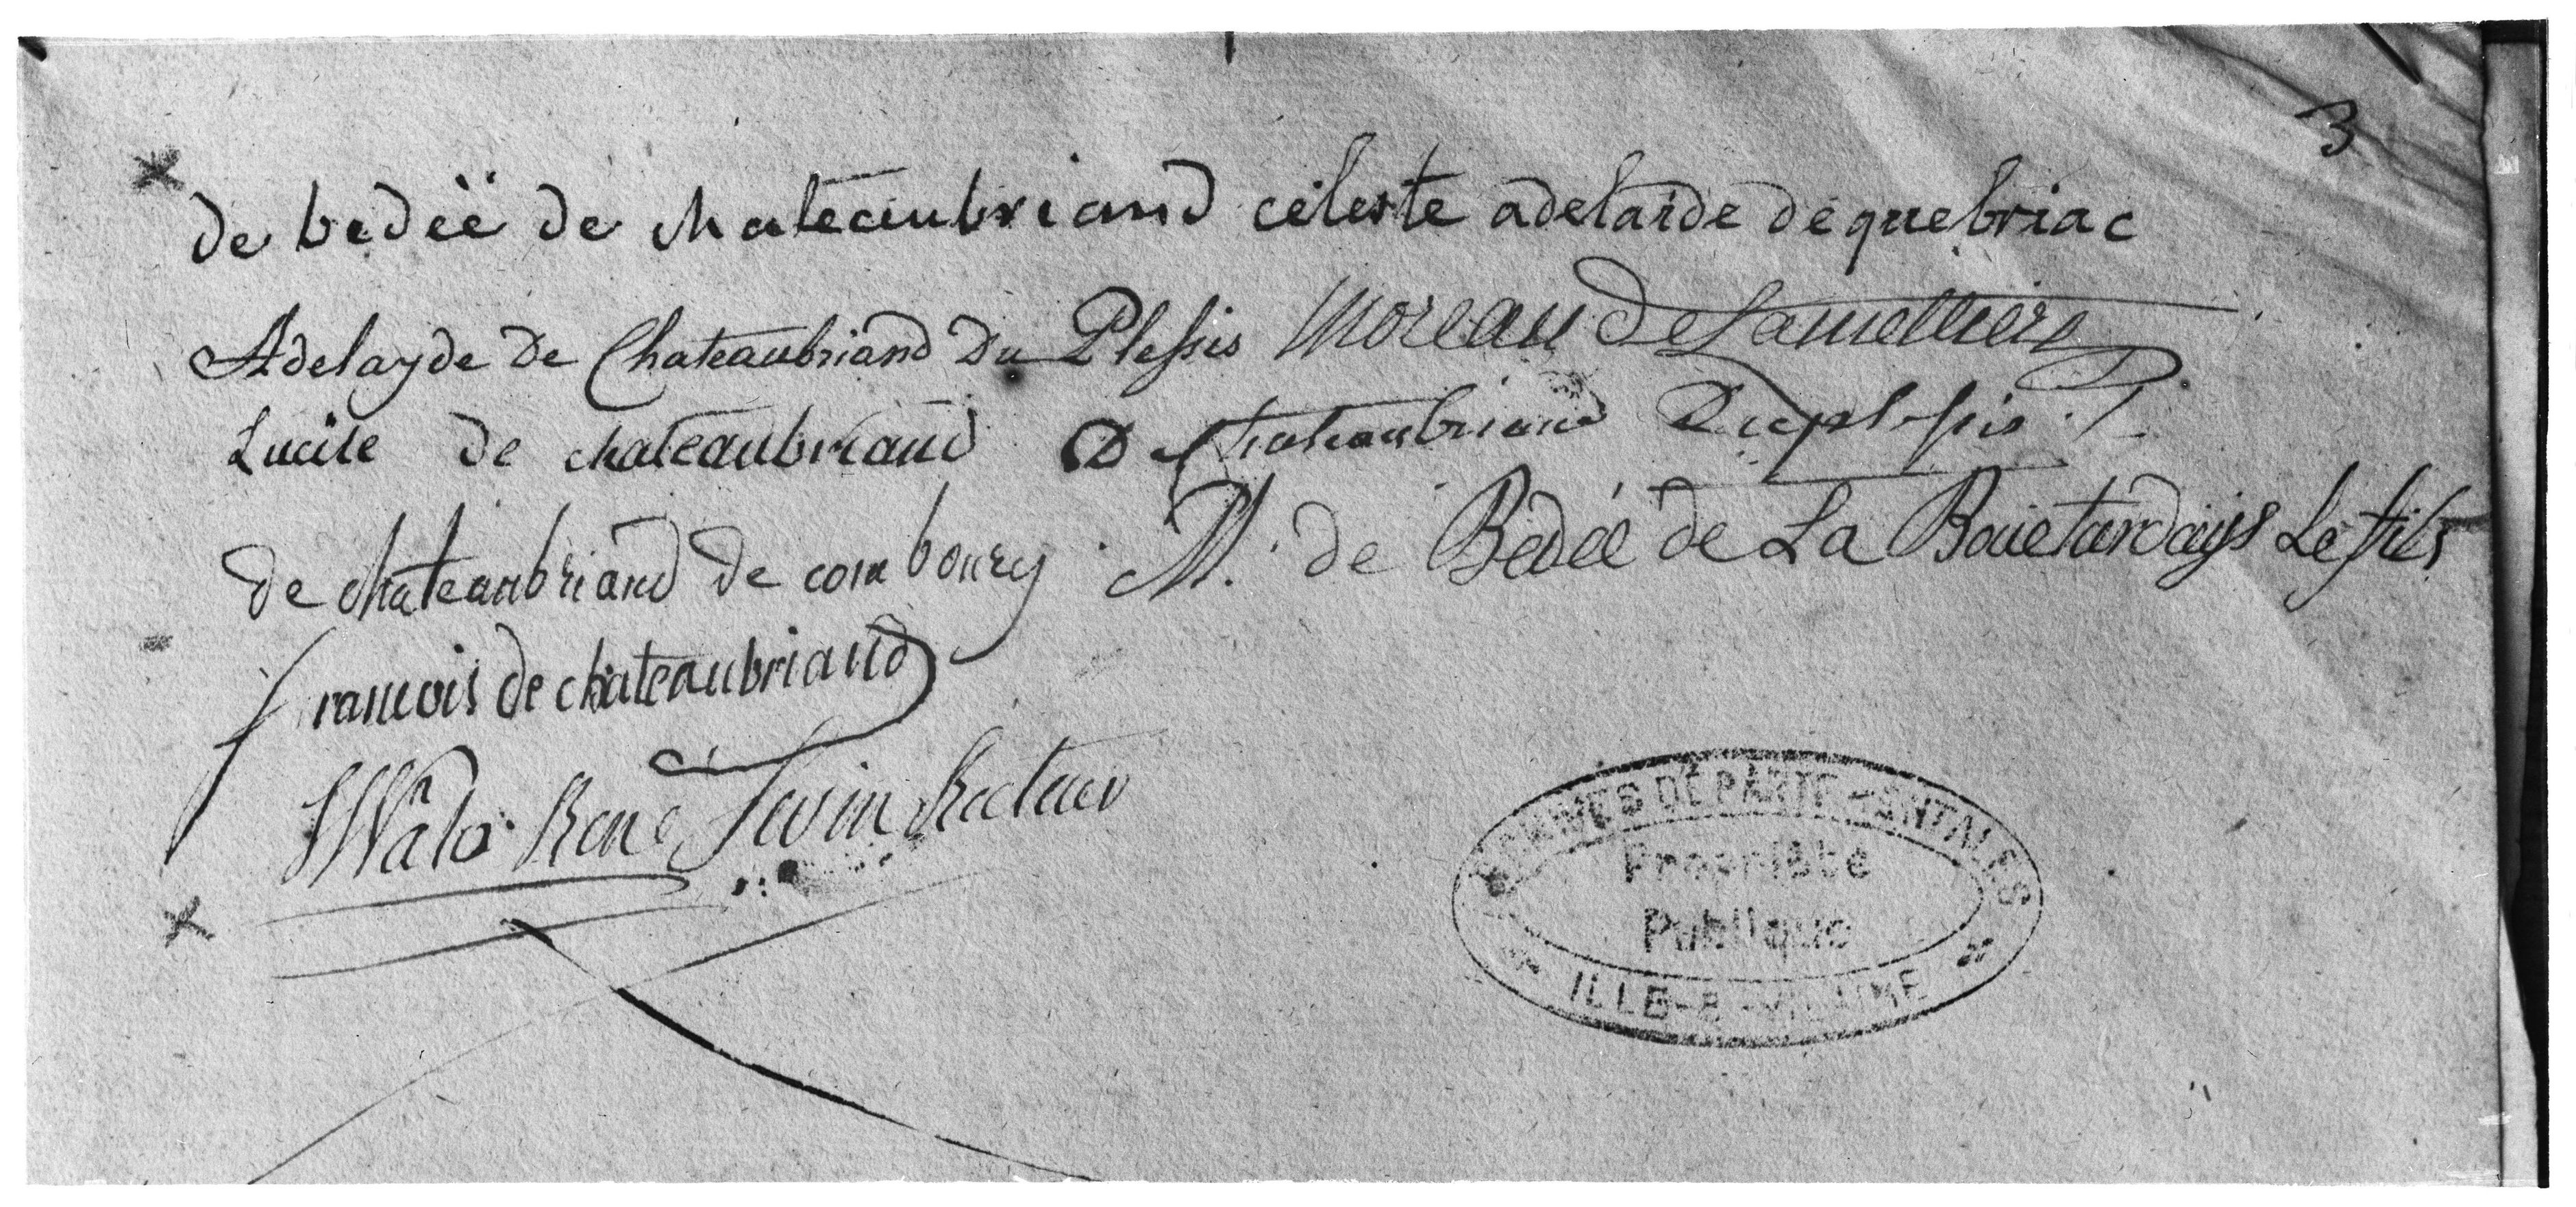 3
de bedeë de chateaubriand céleste adelaide de quebriac
Adelayde De Chateaubriand Du Plessis Moreau De Lamettrie
Lucile de chateaubriand De Chateaubriand Duplessis
de chateaubriand de combourg M. de Bédée de La Bouetardays Le fils
francois de chateaubriand
René Recteur
ARCHIVES DÉPARTEMENTALES
Propriété
Publique
ILLE-&-VILAINE